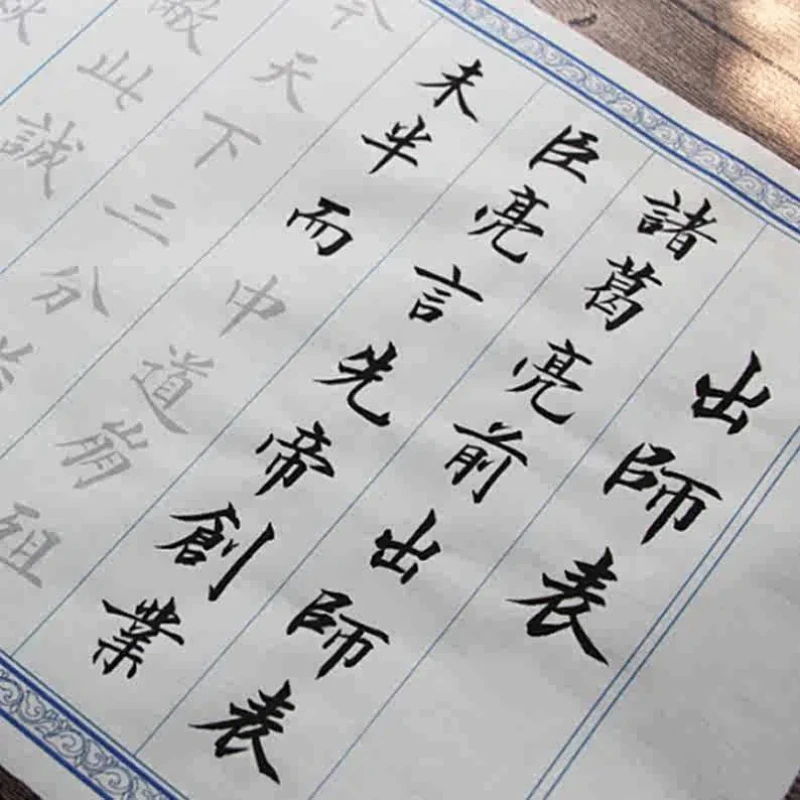 出師表
諸葛亮前出師表
臣亮言先帝創業
未半而中道崩殂
今天下三分
敝此誠